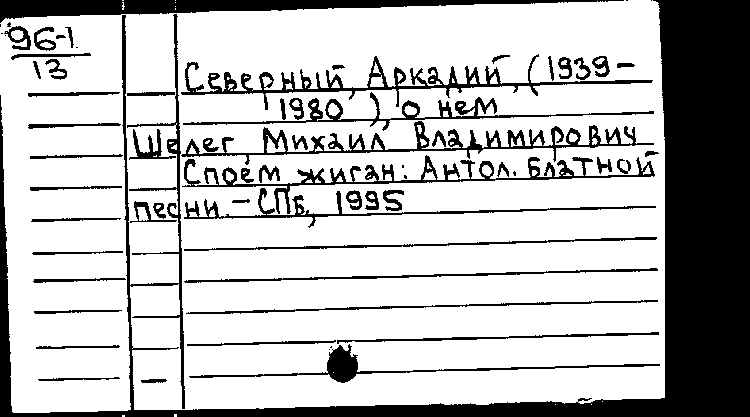 96-1
13
Северный, Аркадий, (1939-
1980), о нем
Шелег, Михаил Владимирович
Споём, жиган: Антол. блатной
песни. - СПб, 1995